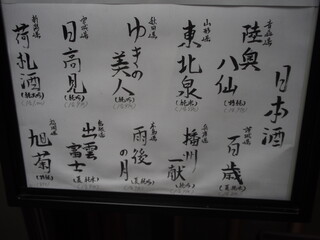 日本酒
青森県
陸奥八仙
(特純)
山形県
東北泉
(純米)
秋田県
ゆきの美人
(純吟)
宮城県
日高見
(純吟)
新潟県
荷札酒
茨城県
百歳
兵庫県
播州一献
(夏純)
広島県
雨後の月
(純吟)
島根県
出雲富士
(夏純米)
福岡県
旭菊
(特純)